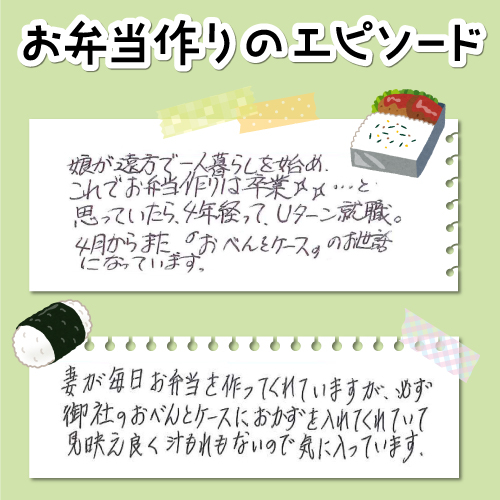 お弁当作りのエピソード
娘が遠方で一人暮らしを始め、
これでお弁当作りは卒業〆〆…と
思っていたら、4年経って、Uターン就職。
4月からまた『おべんとケース』のお世話
になっています。
妻が毎日お弁当を作ってくれていますが、必ず
御社のおべんとケースにおかずを入れてくれていて
見映え良く汁もれもないので気に入っています。